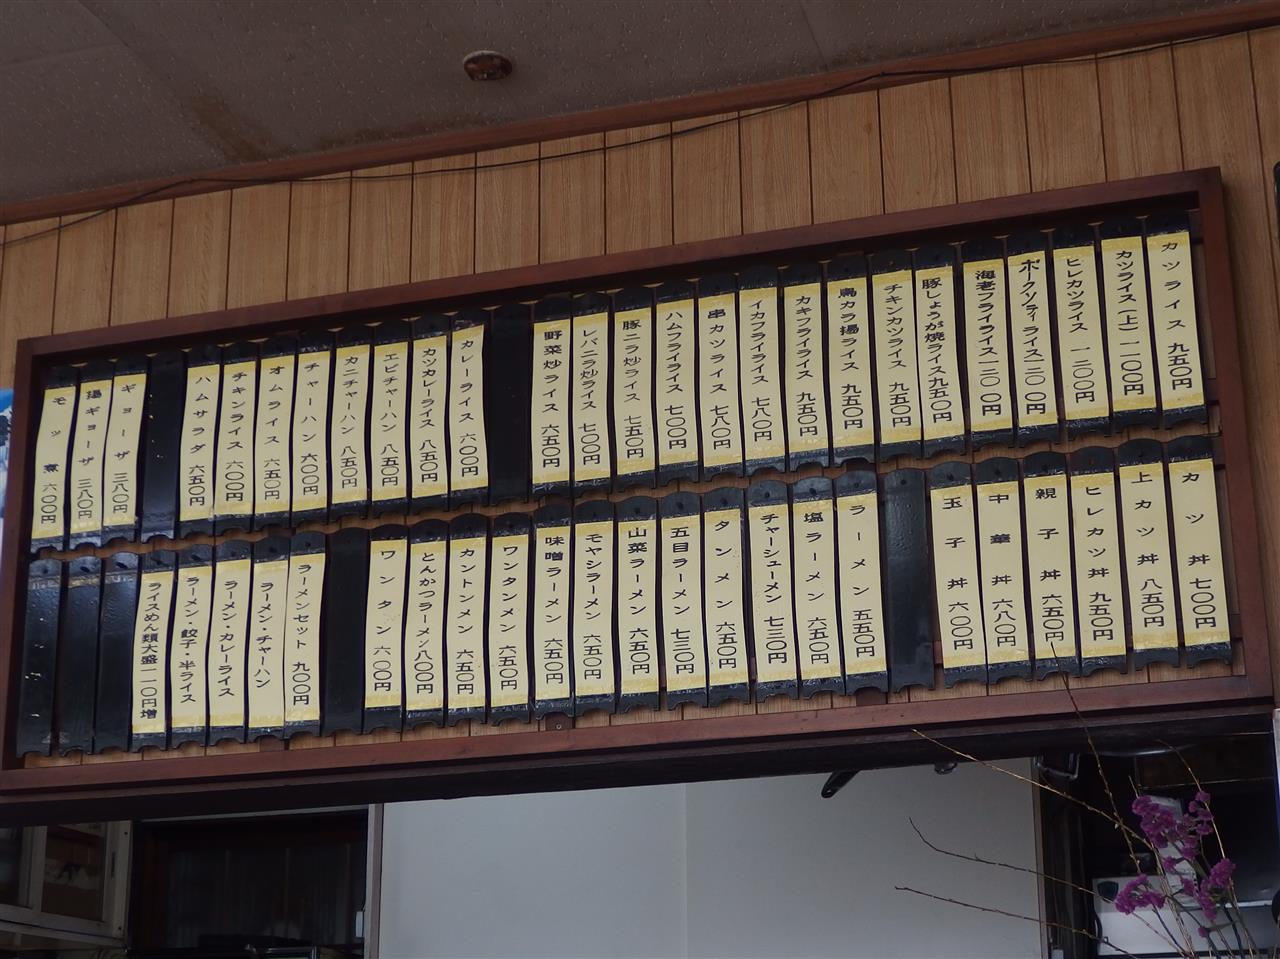 カツライス 九五〇円
カツライス(上) 一一〇〇円
ヒレカツライス 一二〇〇円
ポークソティライス 一二〇〇円
海老フライライス 一三〇〇円
豚しょうが焼ライス 九五〇円
チキンカツライス 九五〇円
鳥カラ揚ライス 九五〇円
カキフライライス 九五〇円
イカフライライス 七八〇円
串カツライス 七八〇円
ハムフライライス 七〇〇円
豚ニラ炒ライス 七五〇円
レバニラ炒ライス 七〇〇円
野菜炒ライス 六五〇円
カレーライス 六〇〇円
カツカレーライス 八五〇円
エビチャーハン 八五〇円
カニチャーハン 八五〇円
チャーハン 六〇〇円
オムライス 六五〇円
チキンライス 六〇〇円
ハムサラダ 六五〇円
ギョーザ 三八〇円
揚ギョーザ 三八〇円
モツ煮 六〇〇円
カツ丼 七〇〇円
上カツ丼 八五〇円
ヒレカツ丼 九五〇円
親子丼 六五〇円
中華丼 六八〇円
玉子丼 六〇〇円
ラーメン 五五〇円
塩ラーメン 六五〇円
チャーシューメン 七三〇円
タンメン 六五〇円
五目ラーメン 七三〇円
山菜ラーメン 六五〇円
モヤシラーメン 六五〇円
味噌ラーメン 六五〇円
ワンタンメン 六五〇円
カントンメン 六五〇円
とんかつラーメン 八〇〇円
ワンタン 六〇〇円
ラーメンセット 九〇〇円
ラーメン・チャーハン
ラーメン・カレーライス
ラーメン・餃子・半ライス
ライスめん類大盛一一〇円増